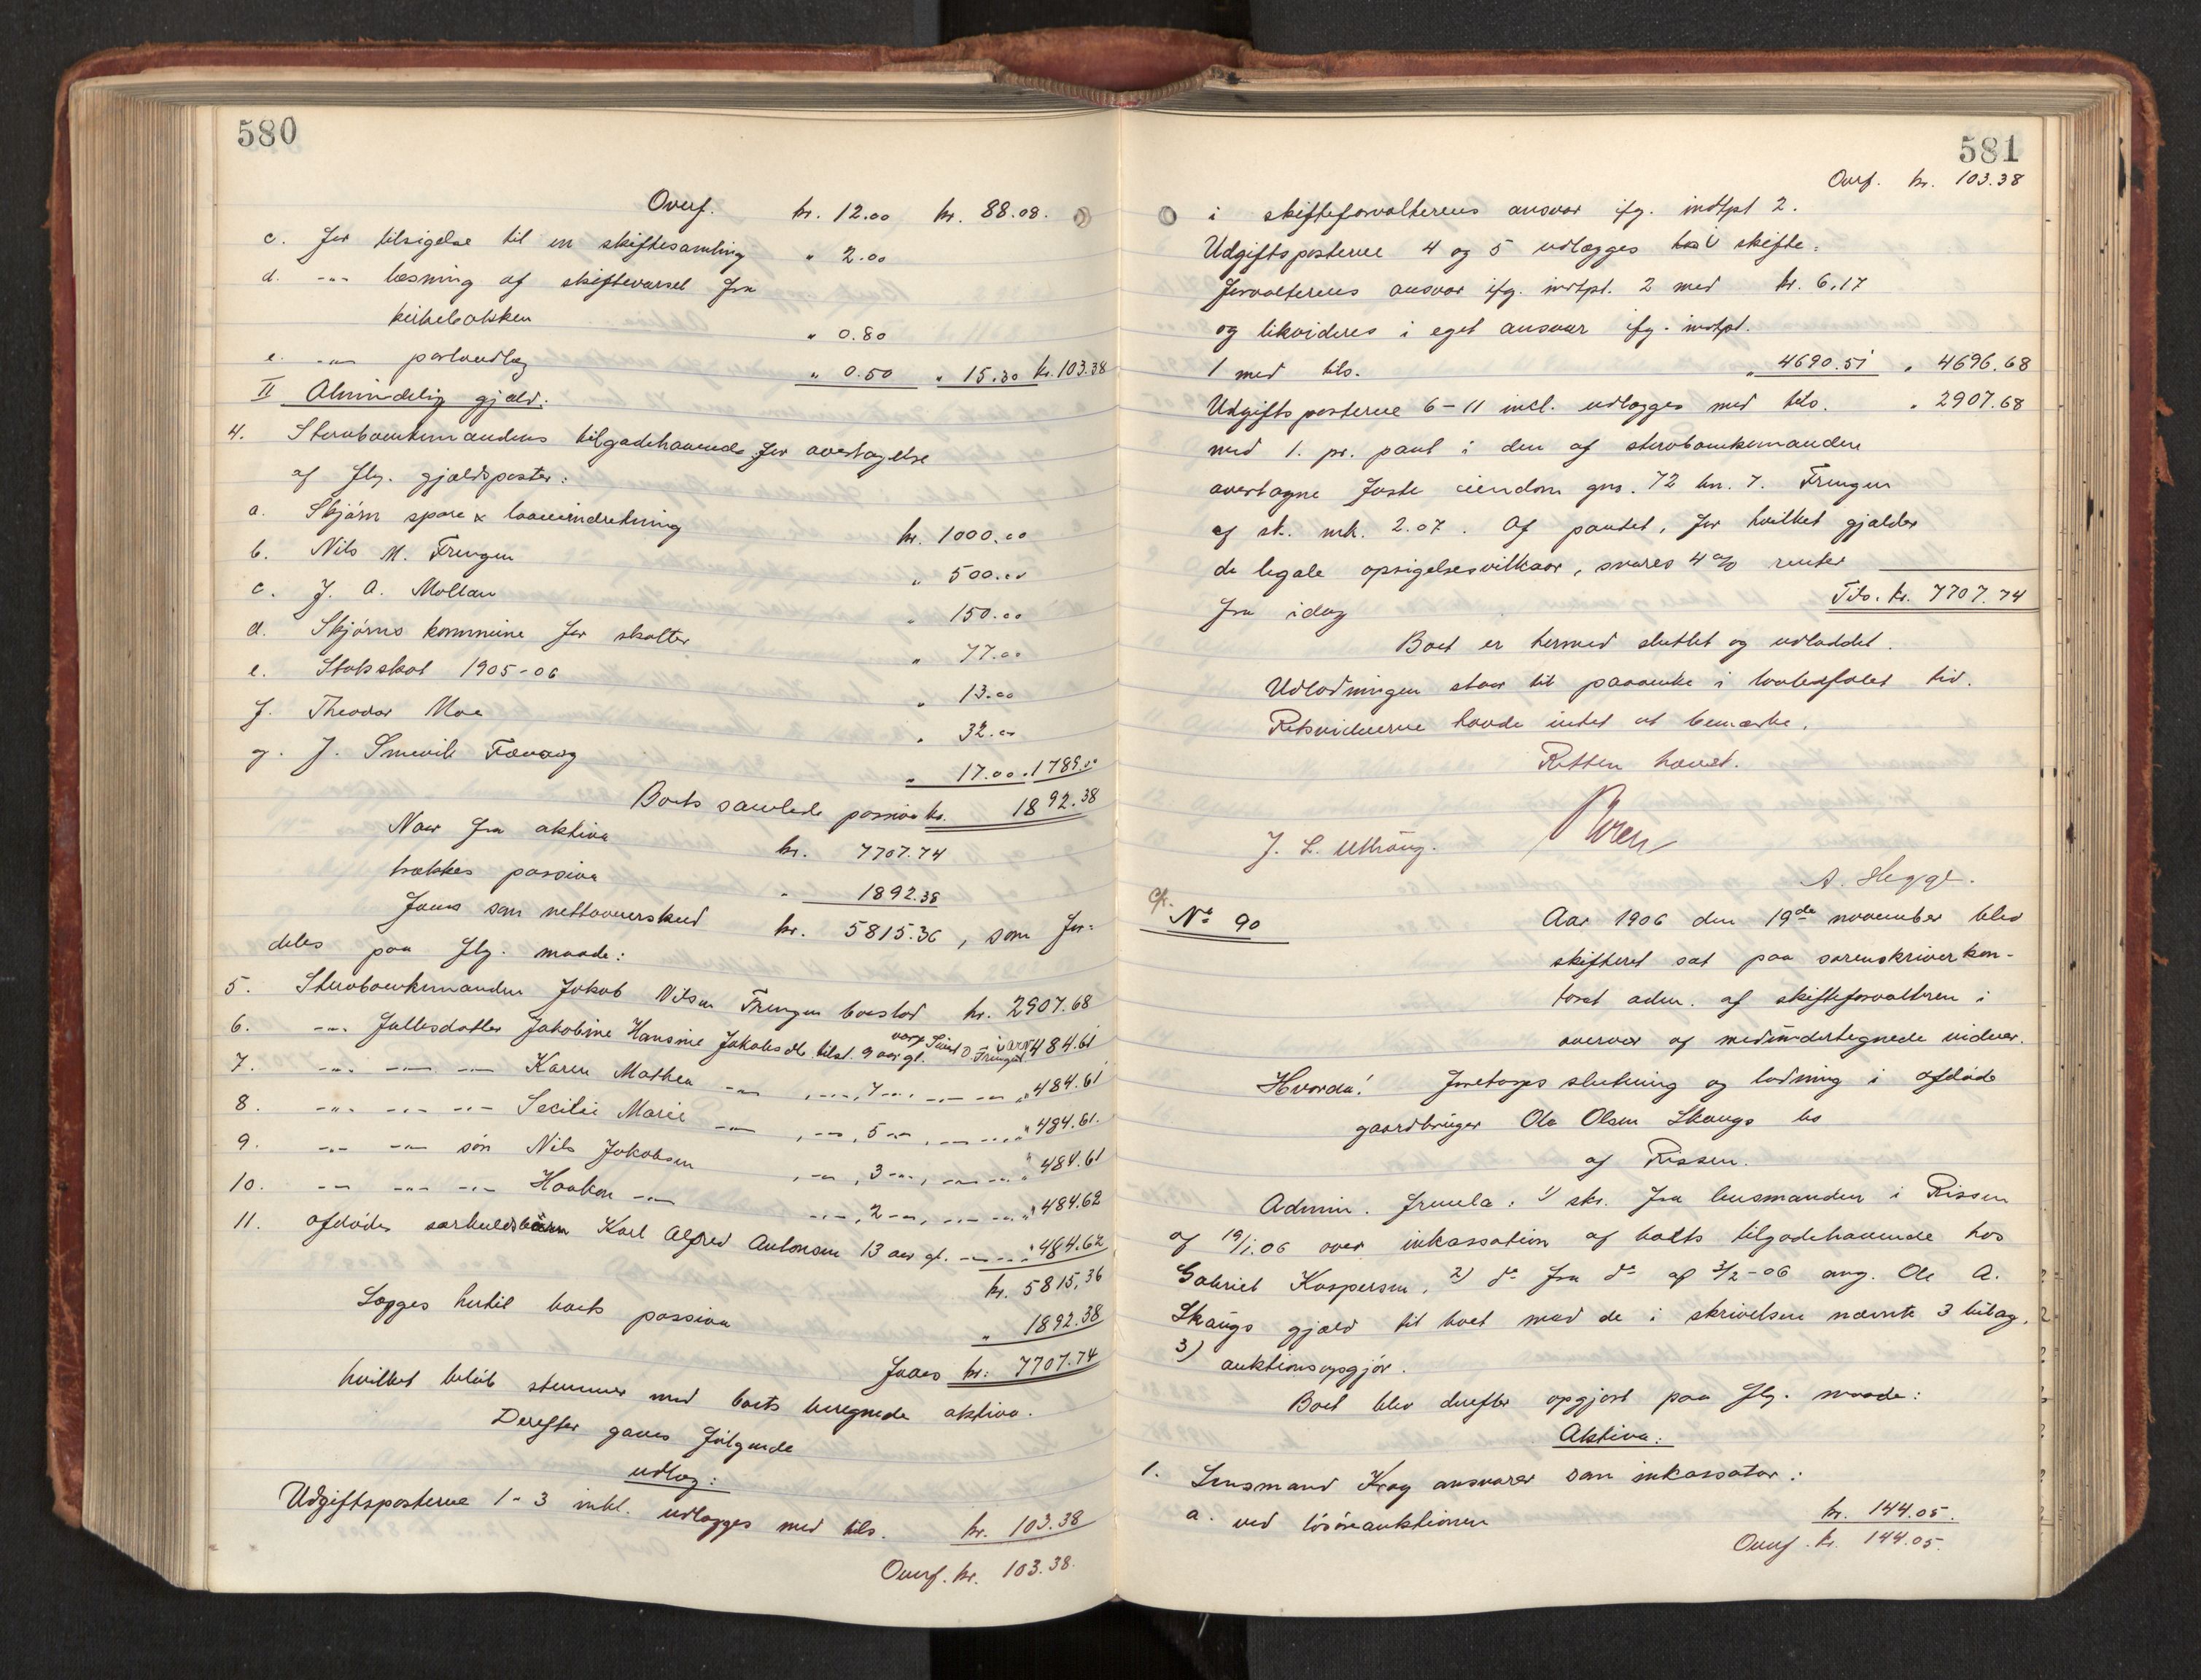 580
Overf. kr. 12.00 kr. 88.08.
c. for tilsigelse til en skiftesamling " 2.00
d. -"- læsning af skiftevarsel fra
kirkebakken " 0.80
e. -"- portoudlæg " 0.50 " 15.30 kr. 103.38
II Almindelig gjæld:
4. Stervboenkemandens tilgodehavende for overtagelse
af flg. gjældsposter:
a. Skjørn spare & laaneindretning kr. 1000.00
b. Nils M. Frengen " 500.00
c. J. A. Mollan " 150.00
d. Skjørns kommune for skatter " 77.00
e. Statsskat 1905-06 " 13.00
f. Theodor Moe " 32.00
g. J. Smevik Fævaag " 17.00 " 1789.00
Boets samlede passiva kr. 1892.38
Naar fra aktiva kr. 7707.74
trækkes passiva " 1892.38
faaes som nettooverskud kr. 5815.36, som for-
deles paa flg. maade:
5. Stervboenkemanden Jakob Nilsen Frengen boeslod kr. 2907.68
6. -"- fællesdatter Jakobine Hansine Jakobsdtr. tilst. 9 aar gl. 484.61
7. -"- -"- -"- Karen Mathea -"- , -"-, 7 -"-, -"- -"- " 484.61
8. -"- -"- -"- Secilie Marie -"- , -"-, 5 -"-, -"- -"- " 484.61.
9. -"- -"- søn Nils Jakobsen , -"-, 3 -"-, -"- -"- " 484.61
10. -"- -"- -"- Haakon -"- -"-, 2 -"-, -"- -"- " 484.62
11. afdødes særkuldsbarn Karl Alfred Antonsen 13 aar gl. -"- -"- " 484.62
kr. 5815.36
Lægges hertil boets passiva " 1892.38
faaes kr: 7707.74
hvilket beløb stemmer med boets beregnede aktiva.
Derefter gaves følgende
udlæg:
Udgiftsposterne 1-3 inkl. udlægges med tils. kr. 103.38
Overf. kr. 103.38.
581
Overf. kr. 103.38
i skifteforvalterens ansvar ifg. indtpt 2.
Udgiftsposterne 4 og 5 udlægges i skifte:
forvalterens ansvar ifg. indtpt. 2 med kr. 6.17
og likvideres i eget ansvar ifg. indtpt.
1 med tils. " 4690.51 " 4696.68
Udgiftsposterne 6-11 incl. udlægges med tils. " 2907.68
med 1. pr. pant i den af stervboenkemanden
overtagne faste eiendom gno. 72 bn. 7. Frengen
af sk. mk. 2.07. Af pantet, for hvilket gjælder
de legale opsigelsesvilkaar, svares 4 % renter
fra idag Tils. kr. 7707.74
Boet er hermed sluttet og udloddet.
Udlodningen staar til paaanke i lovbefalet tid.
Retsvidnerne havde intet at bemærke.
Retten hævet.
J. L. Uthaug.
A. Hegge.
No. 90
Aar 1906 den 19de november blev
skifteret sat paa sorenskriverkon-
toret adm. af skifteforvalteren i
overvær af medundertegnede vidner.
Hvorda! foretoges slutning og lodning i afdøde
gaardbruger Ole Olsen Skaugs bo
af Rissen.
Admin. fremla: 1) skr. fra lensmanden i Rissen
af 19/1.06 over inkassation af boets tilgodehavende hos
Gabriel Kaspersen, 2) do fra do af 3/2-06 ang. Ole A.
Skaugs gjæld til boet med de i skrivelsen nævnte 3 bilag,
3) auktionsopgjør.
Boet blev derefter opgjort paa flg. maade:
Aktiva:
1. Lensmand Krog ansvarer som inkassator:
a. ved løsøreauktionen kr. 144.05.
Overf. kr. 144.05.